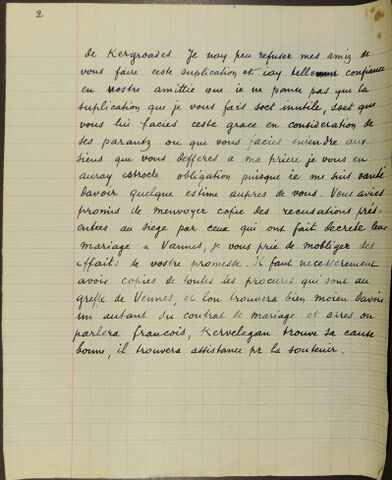 2
de Kergroades. Je nay peu refuser mes amiz de
vous faire ceste suplication et iay tellemt confiance
en vostre amittie que ie ne panse pas que la
suplication que je vous fais soet inutile, soet que
vous lui facies ceste grace en consideration de
ses parantz ou que vous facies entendre aux
siens que vous defferes a ma priere je vous en
auray estrocte obligation puisque ie me suis vanté
davoir quelque estime aupres de vous. Vous avies
promis de menvoyer copie des recusations prés-
entees au siege par ceux qui ont fait decrete leur
mariage a Vannes, je vous prie de mobliger des
effaits de vostre promesse. Il faut necesserement
avoir copies de toutes les procures qui sont au
greffe de Vennes, et lon trouvera bien moien davoir
un autant du contrat de mariage et apres on
parlera francois, Kervelegan trouve sa cause
bonne, il trouvera assistance pr la soutenir.